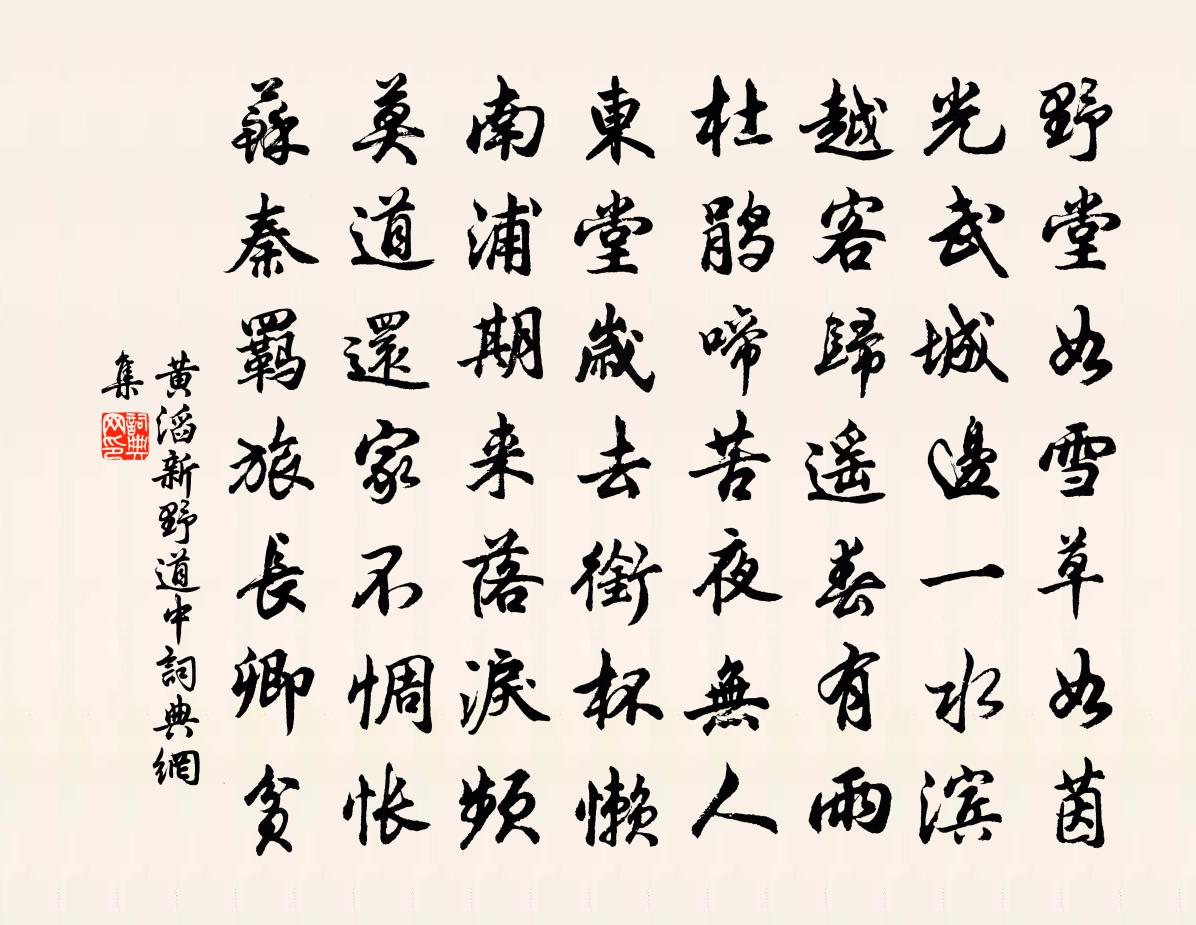 野堂如雪草如茵
光武城邊一水滨
越客歸遥春有雨
杜鹃啼苦夜無人
東堂歲去銜杯懶
南浦期来落淚频
莫道還家不惆怅
蘇秦羈旅長卿貧
黄滔新野道中詞典網
集
詞典网印